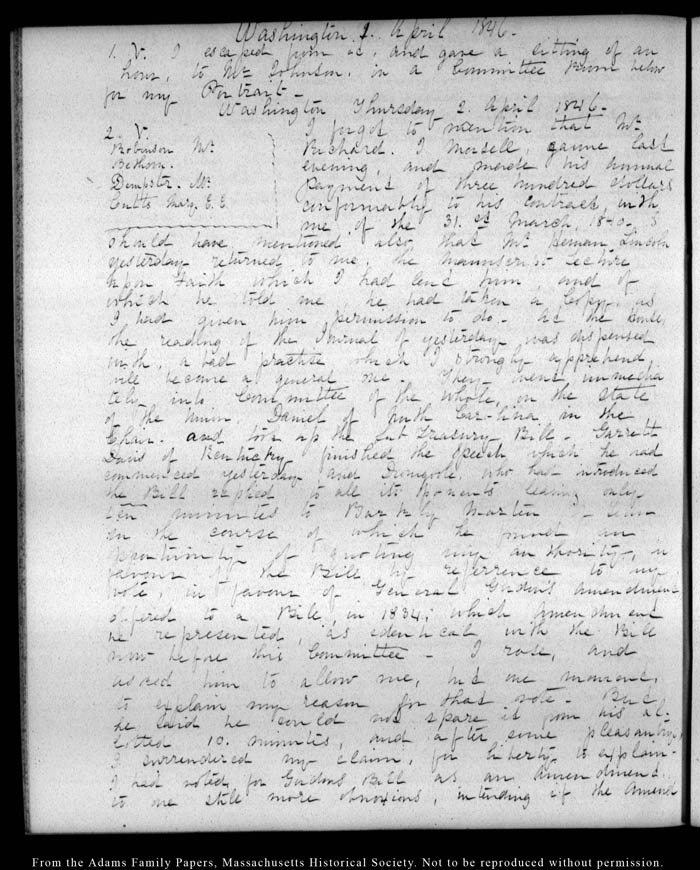 Washington 2. April 1846.
1. V. I escaped from it, and gave a sitting of an
hour, to Mr Johnson, in a Committee Room below
for my Portrait.
Washington Thursday 2. April 1846.
2. V.
Robinson Mr
Bethom.
Dempster. Mr
Cutts Mary. E. E.
I forgot to mention that Mr
Richard. I. Morsell, came last
evening, and made his annual
payment of three hundred dollars
conformably to his contract, with
me of the 31.st March, 1840. I
should have mentioned also, that Mr Heman Lincoln
yesterday returned to me, the manuscript Lecture
upon Faith which I had lent him, and of
which he told me he had taken a Copy. as
I had given him permission to do. At the House,
the reading of the Journal of yesterday, was dispensed
with, a bad practise which I strongly apprehend
will become a general one. They went immedia
tely into Committee of the whole, on the state
of the Union. Daniel of North Carolina in the
Chair. and took up the Sub Treasury Bill. Garrett
Davis of Kentucky finished the Speech which he had
commenced yesterday and Dromgoole, who had introduced
the Bill replied to all its opponents leaving only
ten minutes to Barkly Martin
in the course of which he found an
opportunity of quoting my authority, in
favour of the Bill, by reference to my
vote, in favour of General Gordon's amendment
offered to a Bill, in 1834; which amendment
he represented, as identical with the Bill
now before this Committee. I rose, and
asked him to allow me, but one moment,
to explain my reason for that vote. But
he said he could not spare it from his al-
lotted 10. minutes, and after some pleasantry,
I surrendered my claim, for liberty to explain.
I had voted for Gordons Bill as an amendment
to one still more obnoxious, intending if the amend
From the Adams Family Papers, Massachusetts Historical Society. Not to be reproduced without permission.